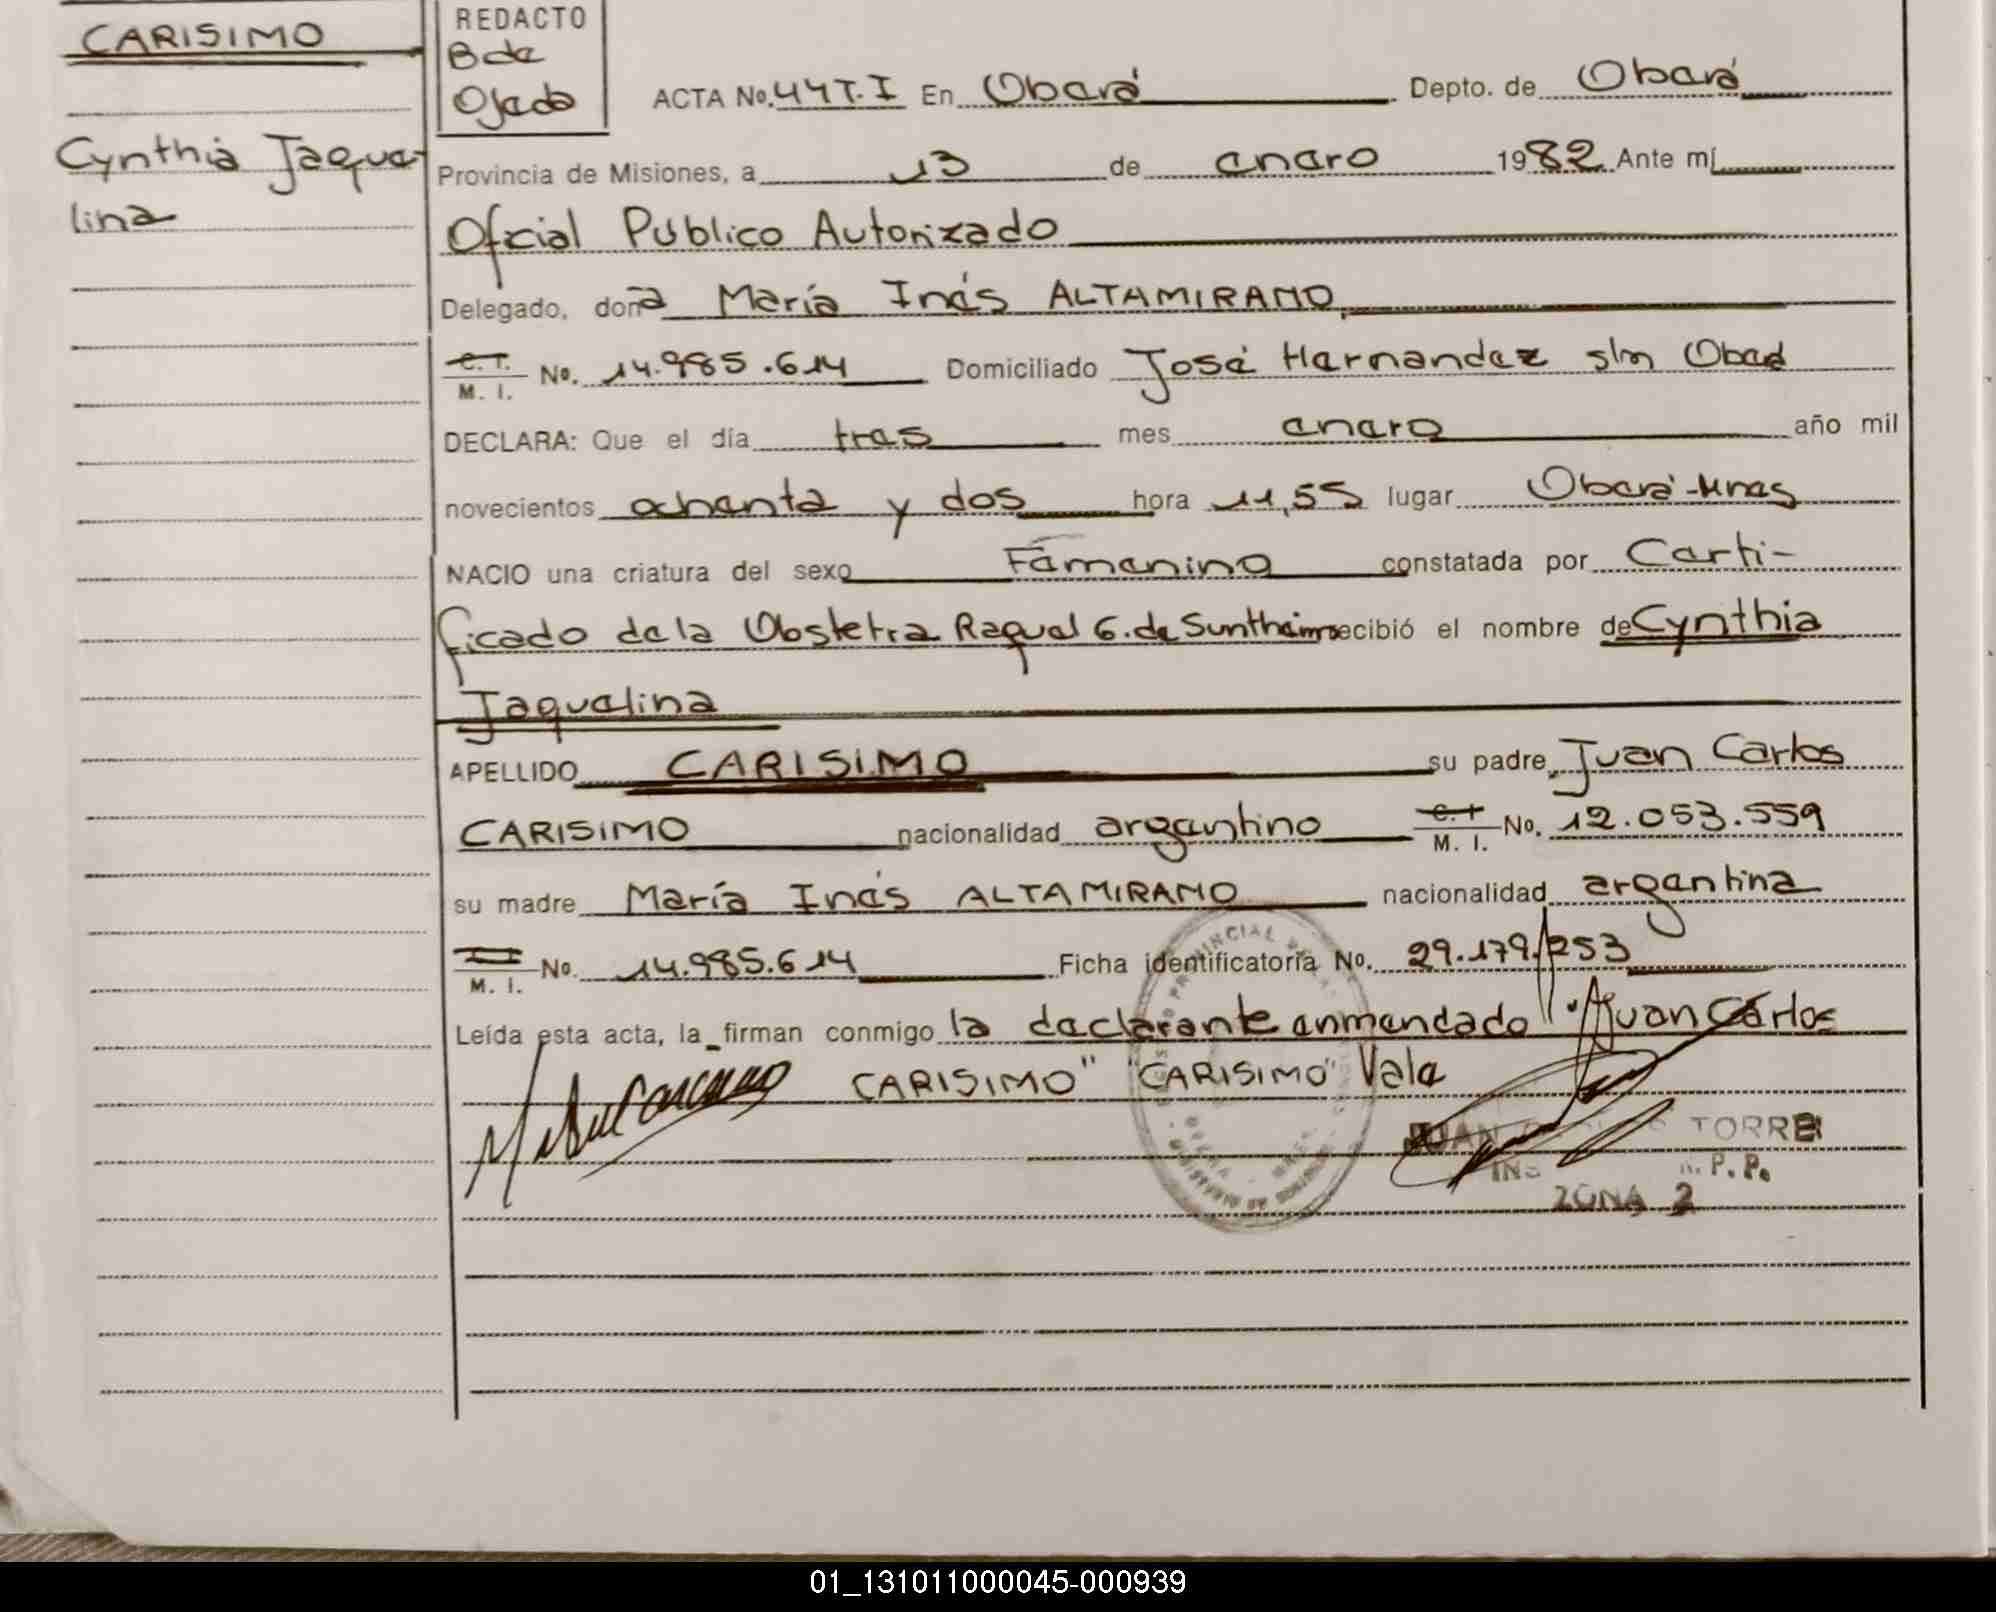 CARISIMO
Cynthia Jaque-
lina
REDACTO
B de
Ojeda
ACTA No. 44 T.I En Oberá Depto. de Oberá
Provincia de Misiones, a 13 de enero 1982 Ante mí
Oficial Publico Autorizado
Delegado, doña María Inés ALTAMIRANO,
C. I. M. I. No. 14.985.614 Domiciliado José Hernandez s/n Oberá
DECLARA: Que el día tres mes enero año mil
novecientos ochenta y dos hora 11,55 lugar Oberá-Mnes
NACIO una criatura del sexo Femenino constatada por Certi-
ficado de la Obstetra Raquel G. de Suntheim recibió el nombre de Cynthia
Jaquelina
APELLIDO CARISIMO su padre Juan Carlos
CARISIMO nacionalidad argentino C. I. M. I. No. 12.053.559
su madre María Inés ALTAMIRANO nacionalidad argentina
M. I. No. 14.985.614 Ficha identificatoria No. 29.179.253
Leída esta acta, la firman conmigo la declarante enmendado "Juan Carlos
CARISIMO" "CARISIMO" Vale
JUAN TORRE
P. P.
ZONA 2
01_131011000045-000939